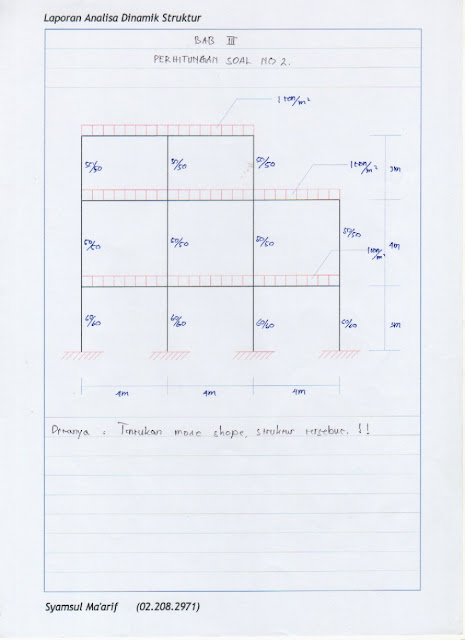 Laporan Analisa Dinamik Struktur
BAB III
PERHITUNGAN SOAL NO 2.
1 ton/m²
50/50 50/50 50/50 1 ton/m² 3m
50/50 50/50 50/50 50/50 4m
1 ton/m²
60/60 60/60 60/60 60/60 3m
4m 4m 4m
Ditanya : Tentukan mode shope, struktur tersebut. !!
Syamsul Ma'arif (02.208.2971)